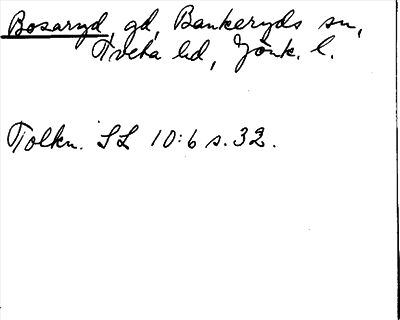 Bosaryd, gd, Bankeryds sn,
Tveta hd, Jönk. l.
Tolkn. SL 10:6 s. 32.